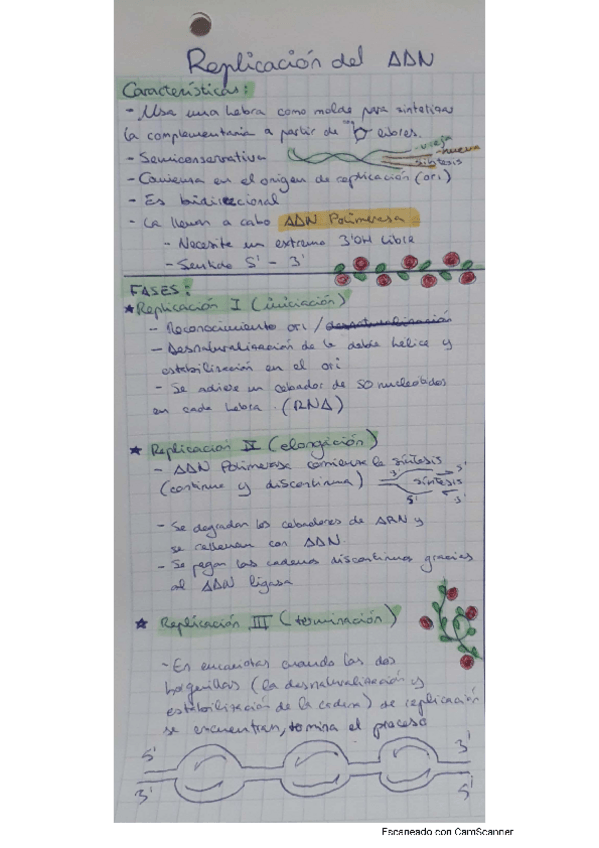 Replicación del ADN
Características:
- Usa una hebra como molde para sintetizar
la complementaria a partir de libres.
- Semiconservativa
vieja
nueva
síntesis
- Comienza en el origen de replicación (ori)
- Es bidireccional
- La llevan a cabo ADN Polimerasa
- Necesite un extremo 3'OH libre
- Sentido 5' - 3'
FASES:
★ Replicación I (iniciación)
- Reconocimiento ori / desnaturalización
- Desnaturalización de la doble hélice y
estabilización en el ori
- Se adiere un cebador de 50 nucleótidos
en cada hebra. (RNA)
★ Replicación II (elongación)
- ADN Polimerasa comienza la síntesis
(continua y discontinua)
3' 5'
síntesis
5' 3'
- Se degradan los cebadores de ARN y
se rellenan con ADN.
- Se pegan las cadenas discontinuas gracias
al ADN ligasa
★ Replicación III (terminación)
- En eucariotas cuando las dos
horquillas (la desnaturalización y
estabilización de la cadena) de replicación
se encuentran, termina el proceso
5' 3'
3' 5'
Escaneado con CamScanner